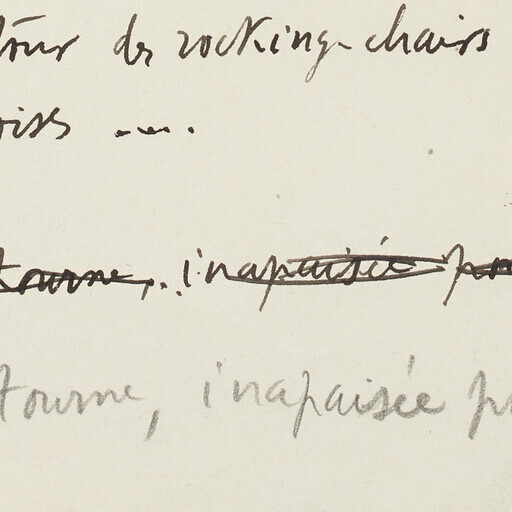 tour des rocking-chairs
oises ....
tourne, inapaisée
tourne, inapaisée